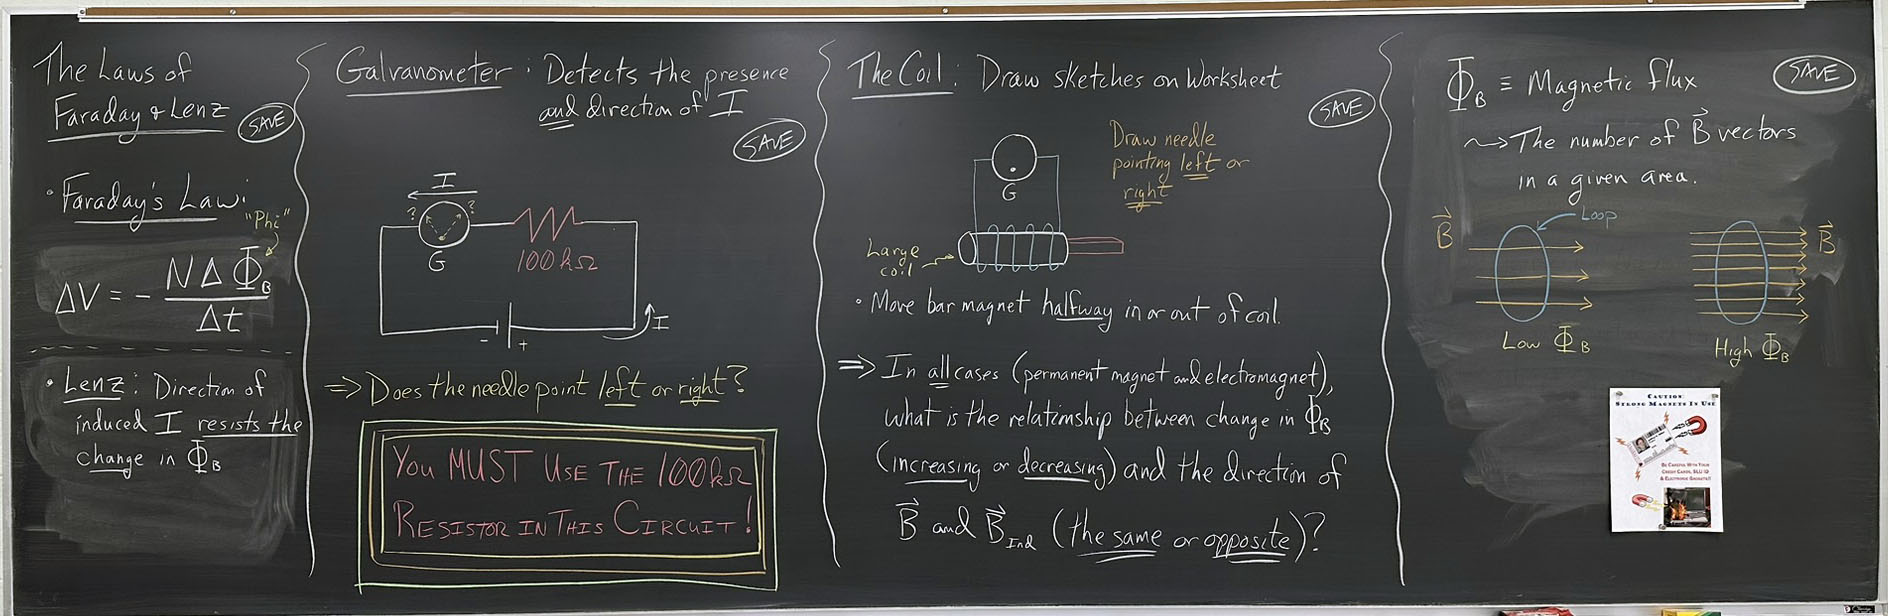 The Laws of
Faraday & Lenz
SAVE
• Faraday's Law:
"Phi"
ΔV = - NΔΦ_B / Δt
• Lenz: Direction of
induced I resists the
change in Φ_B
Galvanometer: Detects the presence
and direction of I
SAVE
I
? ?
G
100kΩ
- +
I
⇒ Does the needle point left or right?
YOU MUST USE THE 100kΩ
RESISTOR IN THIS CIRCUIT!
The Coil: Draw sketches on Worksheet
SAVE
G
Draw needle
pointing left or
right
Large
coil
• Move bar magnet halfway in or out of coil.
⇒ In all cases (permanent magnet and electromagnet),
what is the relationship between change in Φ_B
(increasing or decreasing) and the direction of
B⃗ and B⃗_Ind (the same or opposite)?
Φ_B ≡ Magnetic flux
SAVE
⇝ The number of B⃗ vectors
in a given area.
B⃗
Loop
B⃗
Low Φ_B
High Φ_B
CAUTION:
STRONG MAGNETS IN USE
BE CAREFUL WITH YOUR
CREDIT CARDS, SLU ID
& ELECTRONIC GADGETS!!